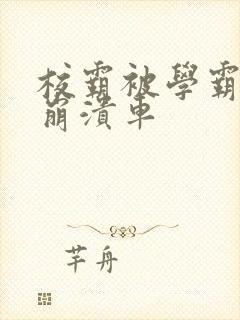 校霸被學霸
崩潰車
芊舟